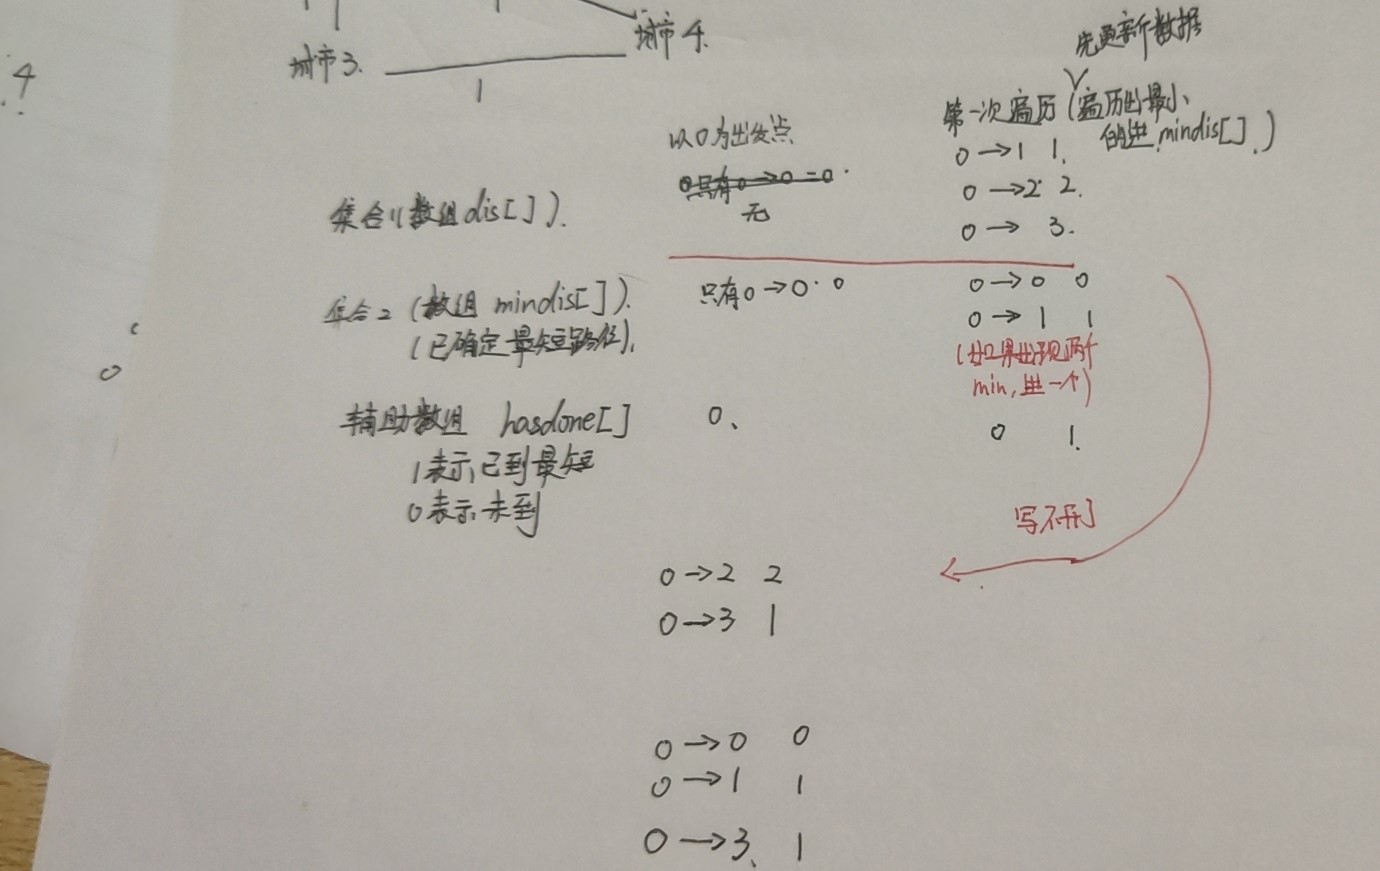 4
城市3.
城市4.
1
先更新数据
第一次遍历(遍历出最小、
的进 mindis[].)
以0为出发点
0→1 1.
0→2 2.
0→ 3.
只有0→0=0.
无
集合1(数组dis[]).
集合2(数组 mindis[]).
(已确定最短路径).
只有0→0. 0
0→0 0
0→1 1
(如果出现两个
min,进一个)
辅助数组 hasdone[]
1表示已到最短
0表示未到
0、
0 1.
写不开了
0→2 2
0→3 1
0
0→0 0
0→1 1
0→3、 1